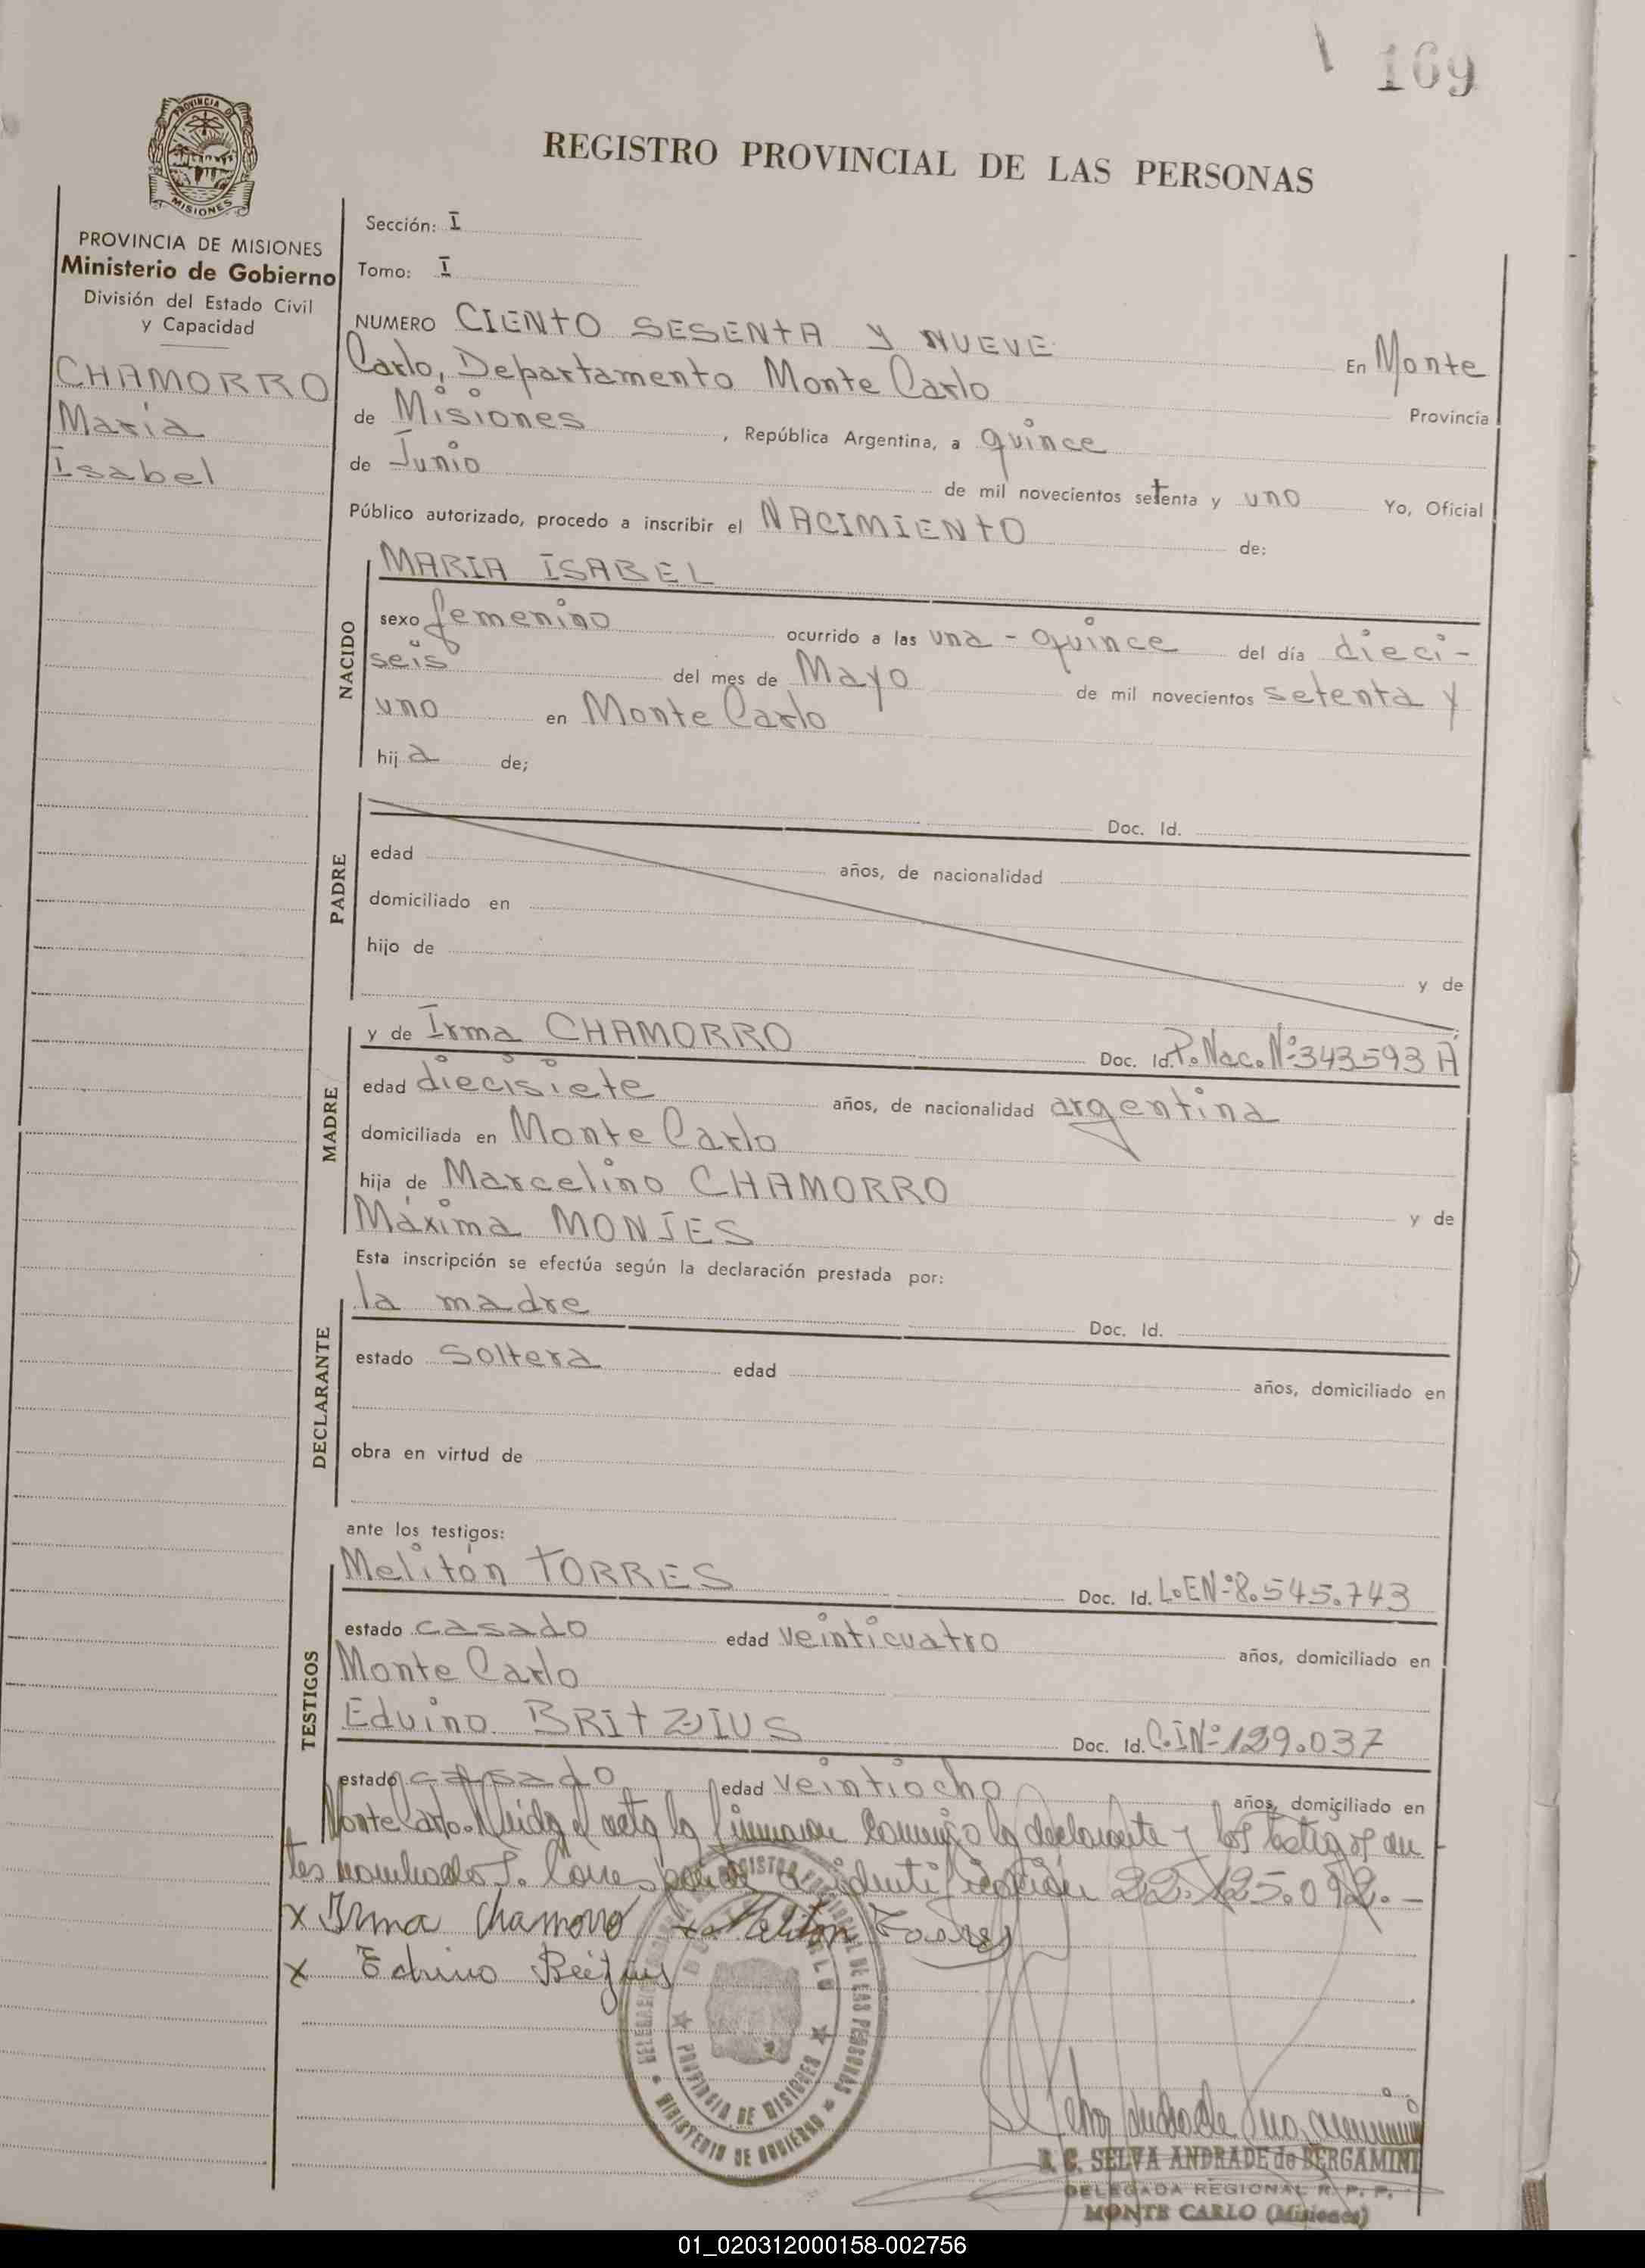 169
REGISTRO PROVINCIAL DE LAS PERSONAS
PROVINCIA DE MISIONES
Ministerio de Gobierno
División del Estado Civil
y Capacidad
CHAMORRO
María
Isabel
Sección: I
Tomo: I
NUMERO CIENTO SESENTA Y NUEVE En Monte
Carlo, Departamento Monte Carlo Provincia
de Misiones, República Argentina, a quince
de Junio de mil novecientos setenta y uno Yo, Oficial
Público autorizado, procedo a inscribir el NACIMIENTO de:
NACIDO
MARIA ISABEL
sexo femenino ocurrido a las una - quince del día dieci-
seis del mes de Mayo de mil novecientos setenta y
uno en Monte Carlo
hija de;
PADRE
Doc. Id.
edad años, de nacionalidad
domiciliado en
hijo de y de
MADRE
y de Irma CHAMORRO Doc. Id. P. Nac. Nº 343593 A
edad diecisiete años, de nacionalidad argentina
domiciliada en Monte Carlo
hija de Marcelino CHAMORRO y de
Máxima MONJES
Esta inscripción se efectúa según la declaración prestada por:
DECLARANTE
la madre Doc. Id.
estado Soltera edad años, domiciliado en
obra en virtud de
ante los testigos:
TESTIGOS
Melitón TORRES Doc. Id. L.E Nº 8.545.743
estado casado edad veinticuatro años, domiciliado en
Monte Carlo
Eduino BRITZIUS Doc. Id. C.I Nº 129.037
estado casado edad veintiocho años, domiciliado en
Monte Carlo. Leída el acta la firman conmigo la declarante y los testigos an
tes nombrados. Corresponde identificación
x Irma Chamorro x Meliton Torres
x
MINISTERIO DE GOBIERNO
PROVINCIA DE MISIONES
SELVA ANDRADE de BERGAMINI
DELEGADA REGIONAL R. P. P.
MONTE CARLO (Misiones)
01_020312000158-002756